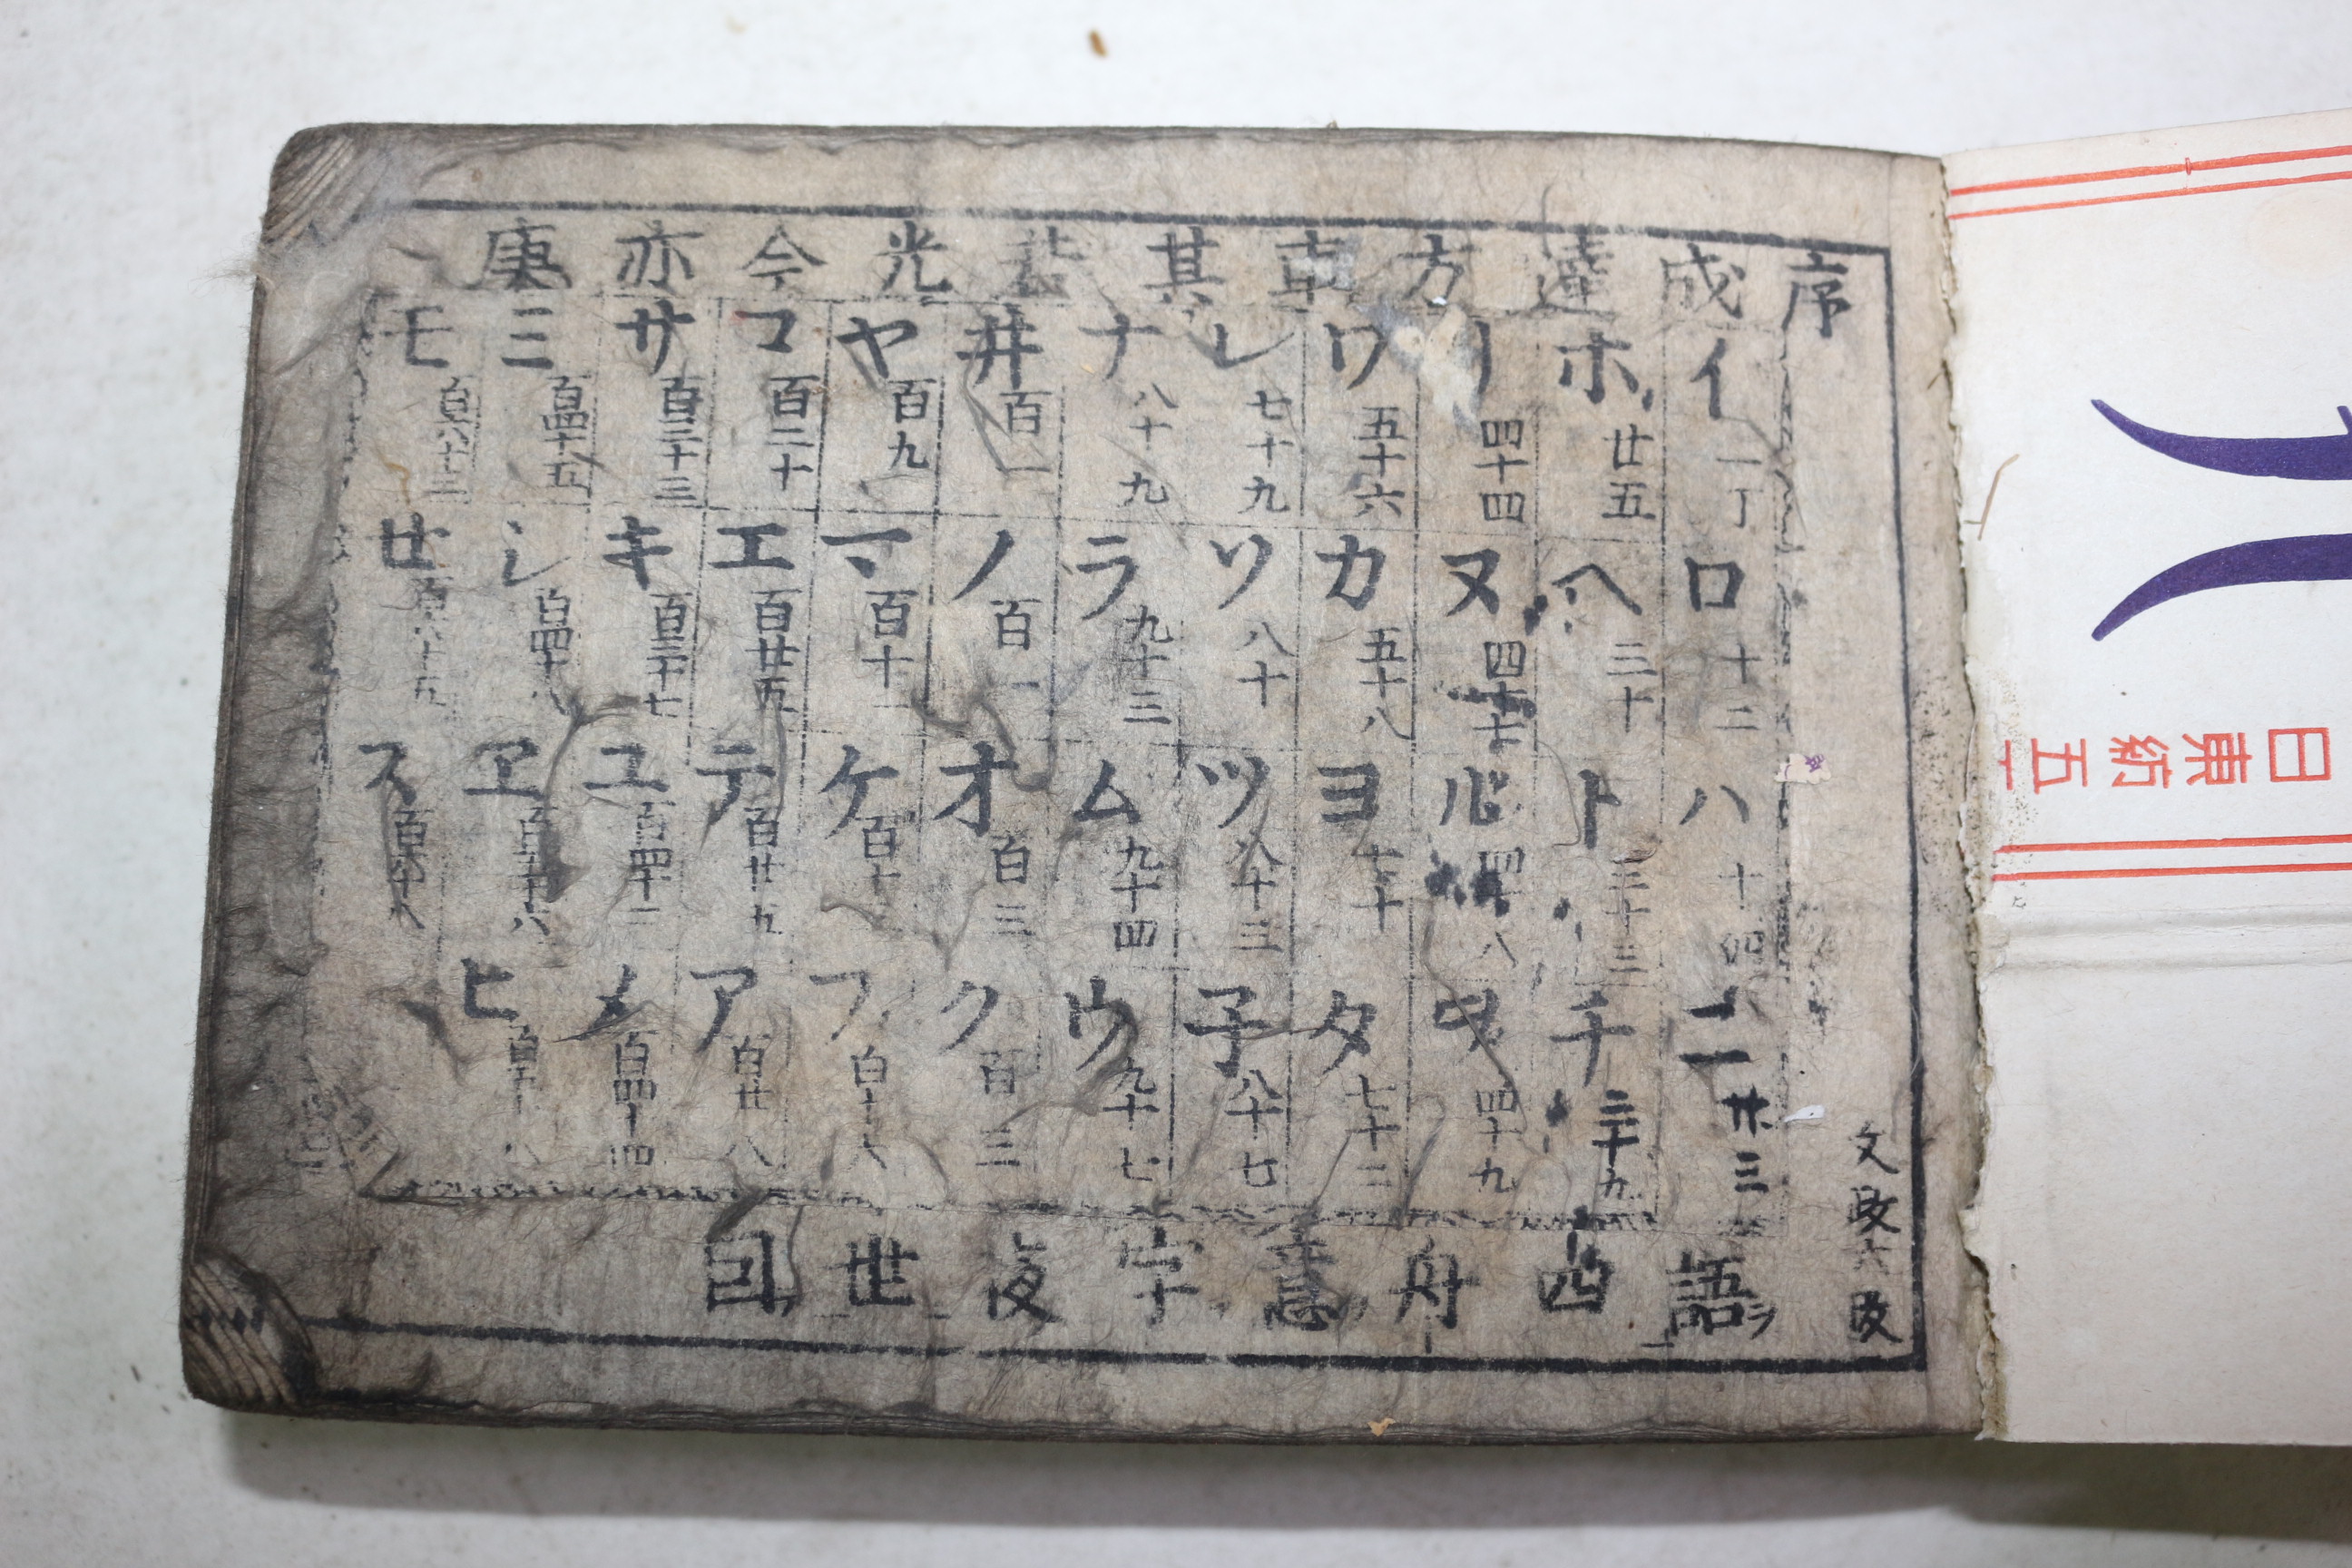 序
文政六改
成達方其光今亦庚
イ 一丁
ロ 十二
ハ 十四
ニ 廿三
ホ 廿五
ヘ 三十
ト 三十三
チ 三十九
リ 四十四
ヌ 四十七
ル 四十八
ヲ 四十九
ワ 五十六
カ 五十八
ヨ 七十
タ 七十二
レ 七十九
ソ 八十
ツ 八十三
子 八十七
ナ 八十九
ラ 九十三
ム 九十四
ウ 九十七
井 百一
ノ 百一
オ 百三
ク 百三
ヤ 百九
マ 百十一
ケ 百十
フ 百十八
コ 百二十
エ 百廿五
テ 百廿五
ア 百廿八
サ 百三十三
キ 百三十七
ユ 百四十二
メ 百四十四
ミ 百四十五
シ 百四十八
ヱ 百五十六
ヒ 百五十八
モ 百六十三
せ 百六十五
ス 百六十八
語
舟
字
世
日東紡
五